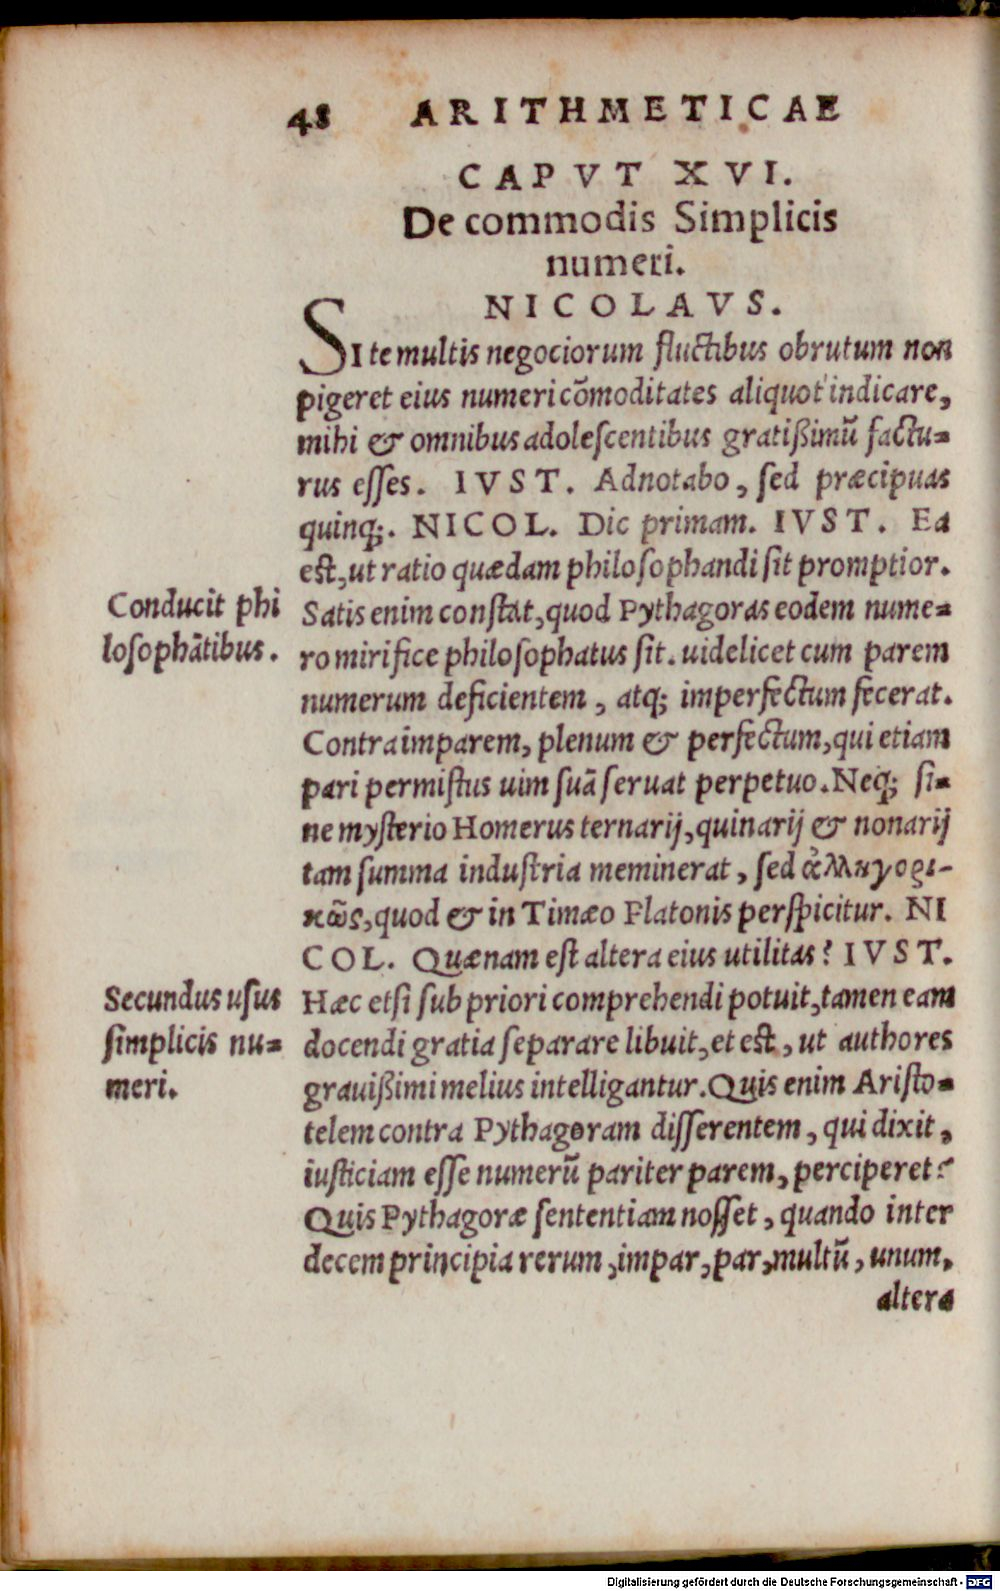 48 ARITHMETICAE
CAPVT XVI.
De commodis Simplicis
numeri.
NICOLAVS.
SI te multis negociorum fluctibus obrutum non
pigeret eius numeri cōmoditates aliquot indicare,
mihi & omnibus adolescentibus gratißimū factu-
rus esses. IVST. Adnotabo, sed præcipuas
quinq;. NICOL. Dic primam. IVST. Ea
est, ut ratio quædam philosophandi sit promptior.
Conducit phi
losophātibus.
Satis enim constat, quod Pythagoras eodem nume-
ro mirifice philosophatus sit. uidelicet cum parem
numerum deficientem, atq; imperfectum fecerat.
Contra imparem, plenum & perfectum, qui etiam
pari permistus uim suā seruat perpetuo. Neq; si-
ne mysterio Homerus ternarij, quinarij & nonarij
tam summa industria meminerat, sed ἀλληγορι-
κῶς, quod & in Timæo Platonis perspicitur. NI
COL. Quænam est altera eius utilitas? IVST.
Secundus usus
simplicis nu-
meri.
Hæc etsi sub priori comprehendi potuit, tamen eam
docendi gratia separare libuit, et est, ut authores
grauißimi melius intelligantur. Quis enim Aristo-
telem contra Pythagoram disserentem, qui dixit,
iusticiam esse numerū pariter parem, perciperet?
Quis Pythagoræ sententiam nosset, quando inter
decem principia rerum, impar, par, multū, unum,
altera
Digitalisierung gefördert durch die Deutsche Forschungsgemeinschaft - DFG